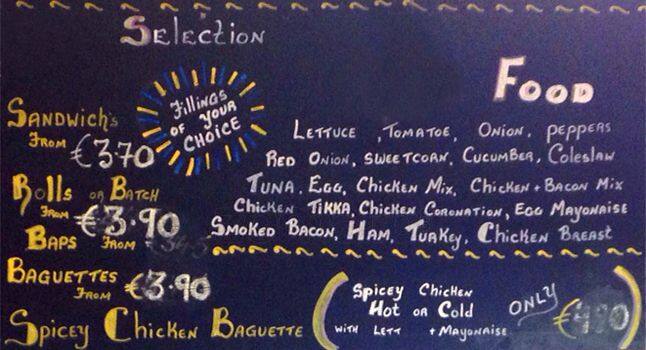 Selection
Food
Fillings
of your
Choice
Sandwich's
From €3.70
Rolls or Batch
From €3.90
Baps From
Baguettes
From €3.90
Lettuce , Tomatoe, Onion, peppers
Red Onion, sweetcorn, Cucumber, Coleslaw
Tuna, Egg, Chicken Mix, Chicken + Bacon Mix
Chicken Tikka, Chicken Coronation, Egg Mayonaise
Smoked Bacon, Ham, Turkey, Chicken Breast
Spicey Chicken Baguette
Spicey Chicken
Hot or Cold
with Lett + Mayonaise
only